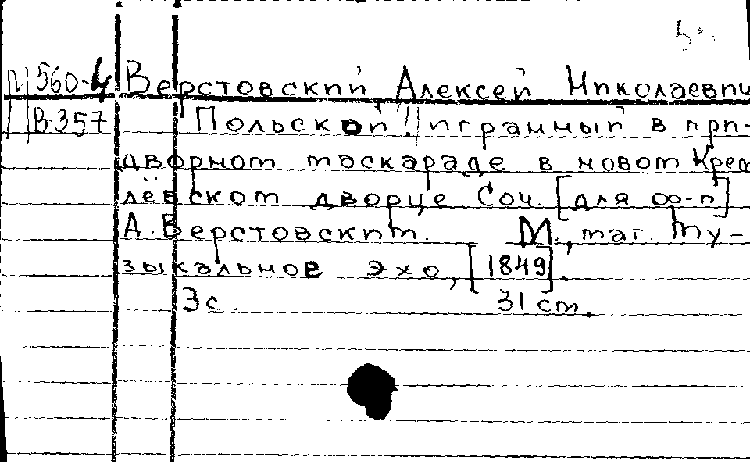 М 560-4 Верстовский, Алексей Николаевич
В-357 Польской! играммый в при-
двормом маскараде в новом Крем
лёвском дворце Соч. [для ф-п]
А. Верстовским. М., маг. Му-
зыкальное эхо, [1849].
3с. 31 см.